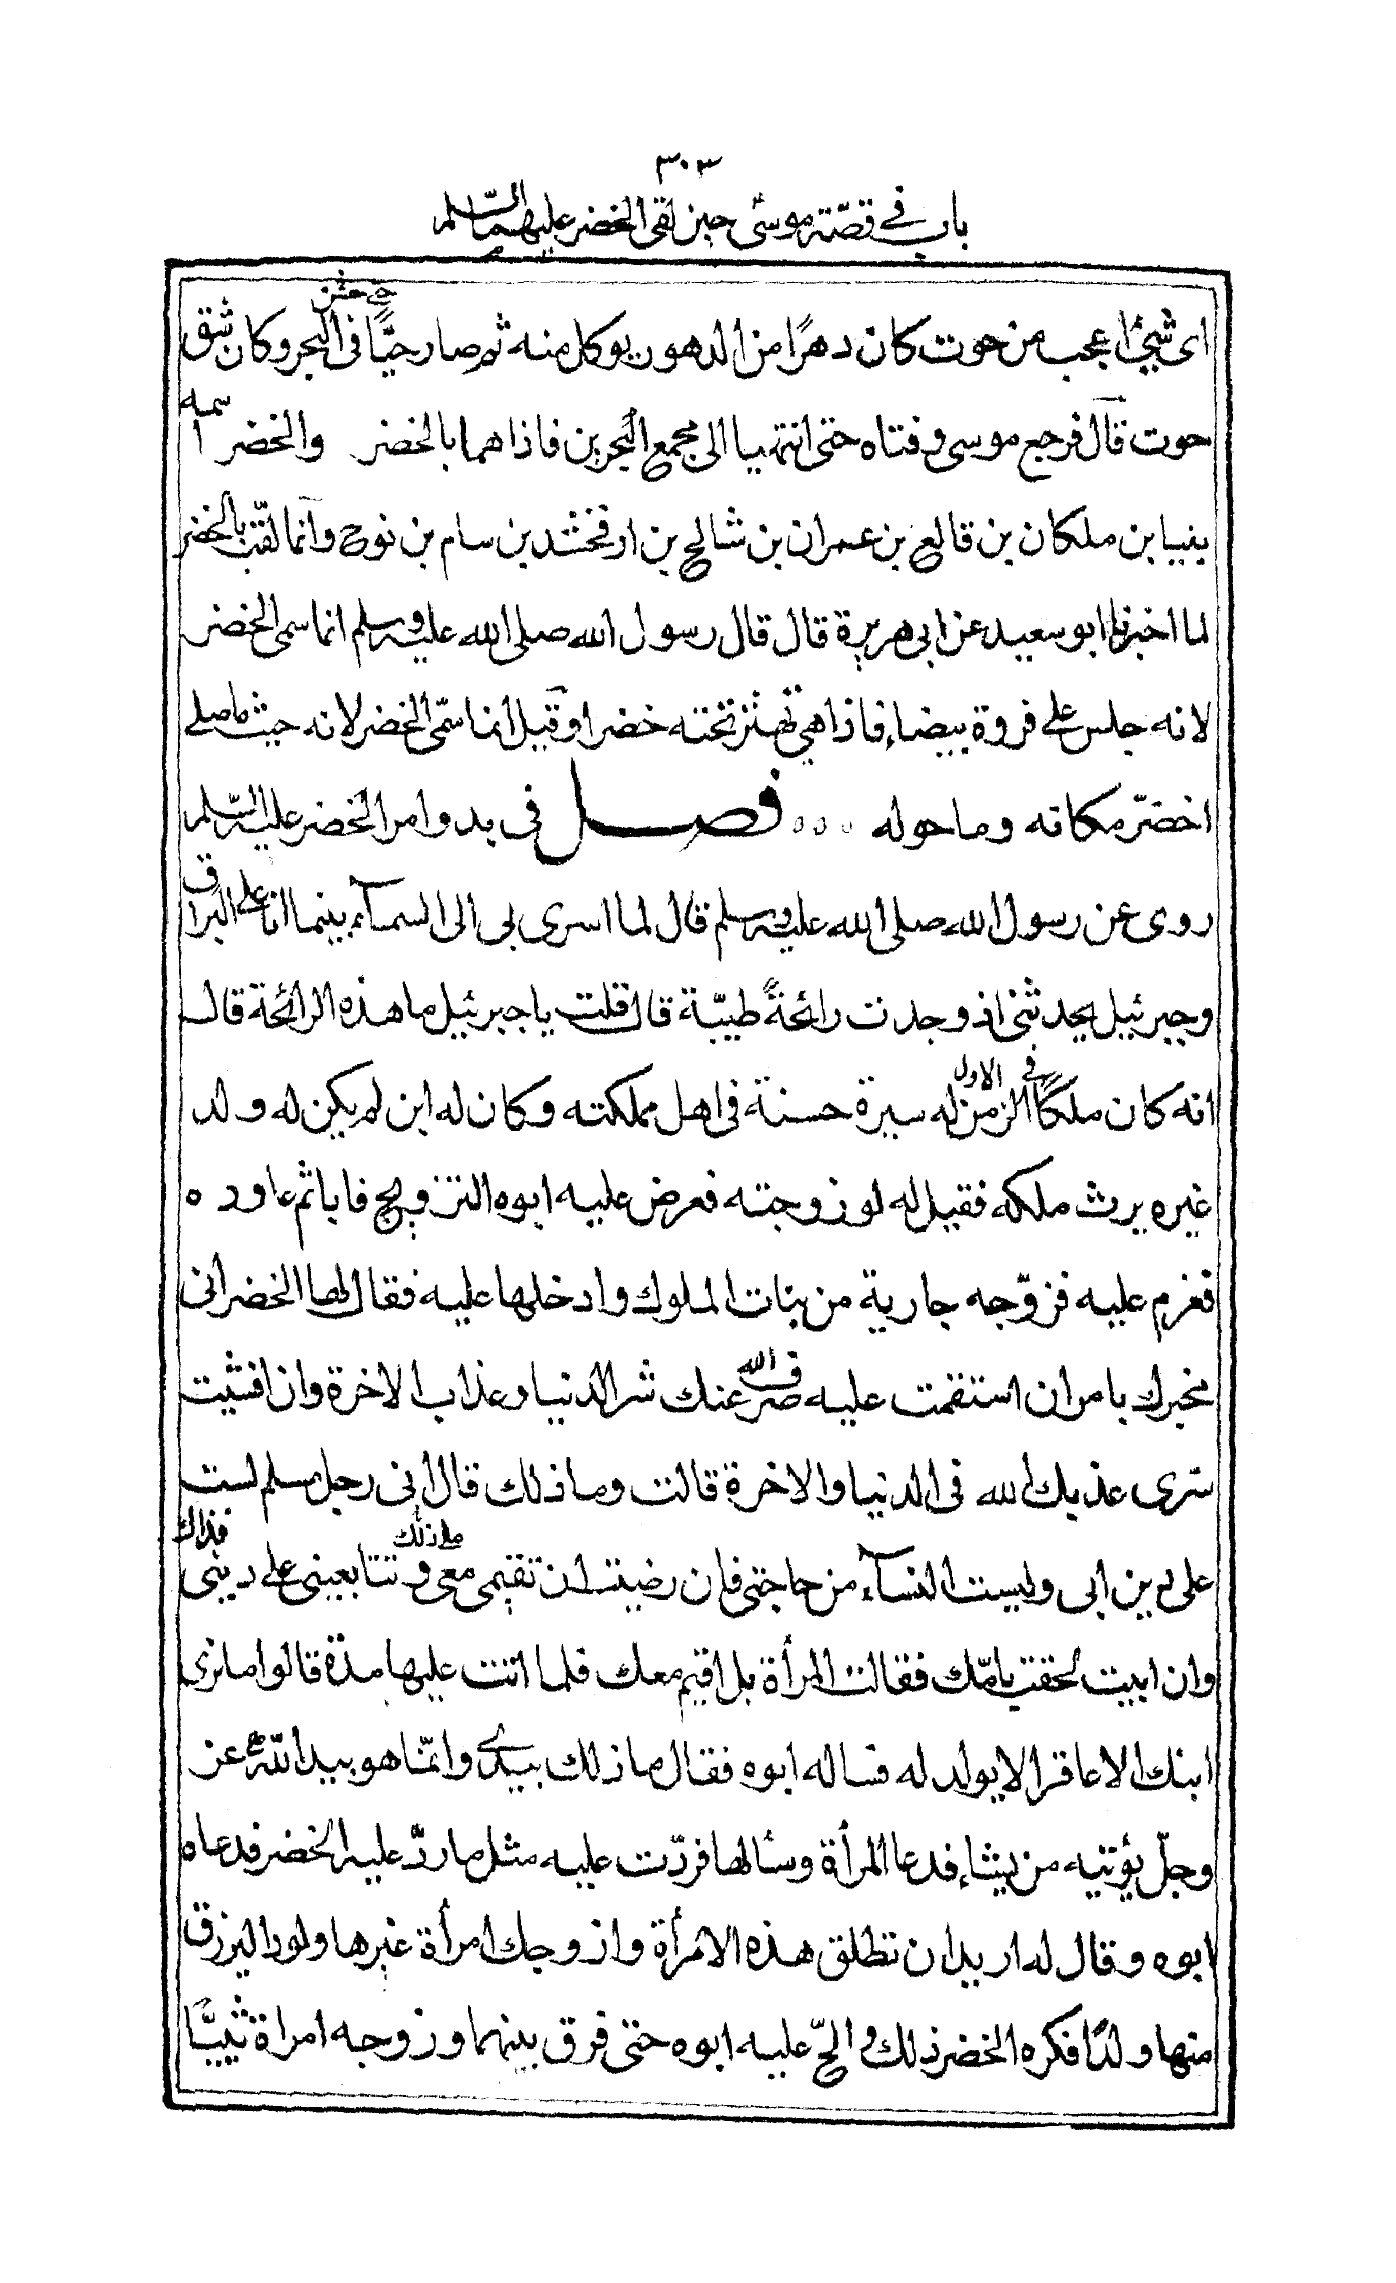 ٣٠٣
باب في قصّة موسى حين لقى الخضر عليهما السّلم
اى شيئ اعجب من حوت كان دهرًا من الدهور يوكل منه ثم صار حيًّا حتى حشر فى البحر وكان شق
حوت قال فرجع موسى وفتاه حتى انتهيا الى مجمع البحرين فاذا هما بالخضر والخضر اسمه
بنيا بن ملكان بن قالع بن عمران بن شالح بن ارفخشد بن سام بن نوح وانما لقّب بالخضر
لما اخبرنا ابو سعيد عن ابى هريرة قال قال رسول الله صلى الله عليه وسلم انما سمى الخضر
لانه جلس على فروة بيضاء فاذا هي تهتز تحته خضرا وقيل انما سمّى الخضر لانه حيث ما صلى
اخضرّ مكانه وما حوله ٥٥٥ فصل فى بدو امر الخضر عليه السّلم
روى عن رسول الله صلى الله عليه وسلم قال لما اسرى بى الى السمآء بينما انا على البراق
وجبرئيل يحدثنى اذ وجدت رائحةً طيبّة قال قلت يا جبرئيل ما هذه الرائحة قال
انه كان ملكًا في الزمن الاول له سيرة حسنة فى اهل مملكته وكان له ابن لم يكن له ولد
غيره يرث ملكه فقيل له لو زوجته فعرض عليه ابوه التزويج فابا ثم عاوده
فعزم عليه فزوّجه جارية من بنات الملوك وادخلها عليه فقال لها الخضر انى
مخبرك بامر ان استقمت عليه صرف الله عنك شر الدنيا وعذاب الاخرة وان افشيت
سّرى عذبك الله فى الدنيا والاخرة قالت وما ذلك قال انى رجل مسلم لست
على دين ابى وليست النسآء من حاجتى فان رضيت ان تقيمى معى على ذلك و تتابعينى على دينى فذاك
وان ابيت لحقت بامّك فقالت المرأة بل اقيم معك فلما اتت عليها مدّة قالوا ما نرى
ابنك الا عاقرا لا يولد له فساله ابوه فقال ما ذلك بيدى وانّما هو بيد الله عز
وجلّ يؤتيه من يشاء فدعا المرأة وسئالها فردّت عليه مثل ما ردّ عليه الخضر فدعاه
ابوه وقال له اريد ان تطلق هذه الامرأة وازوجك امرأة غيرها ولودا ليرزق
منها ولدًا فكره الخضر ذلك و الحّ عليه ابوه حتى فرق بينهما وزوجه امراة ثيبًّا